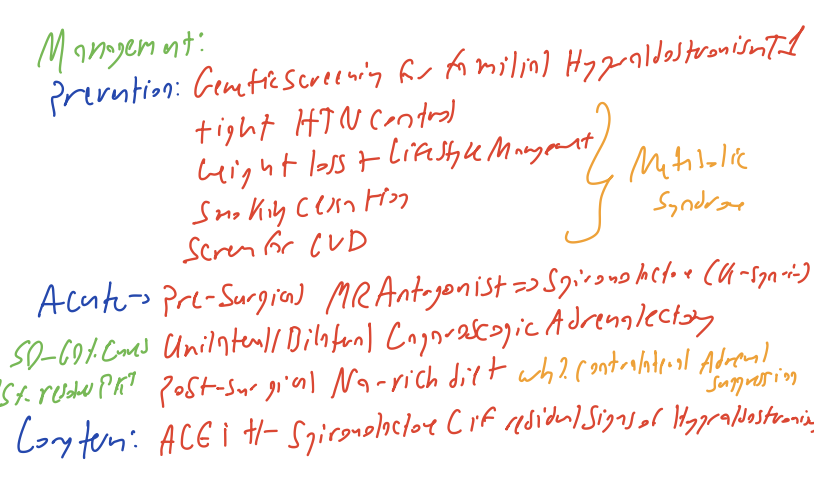 Management:
Prevention: Genetic Screening for familial Hyperaldostronism T1
tight HTN Control
Weight loss + Lifestyle Management
Smoking Cessation
Screen for CVD
Metabolic
Syndrome
Acute-> Pre-Surgical MR Antagonist => Spironolactone
50-60% Cures Unilateral/Bilateral Laparoscopic Adrenalectomy
Post-surgical Na-rich diet why? Contralateral Adrenal
Suppression
Longterm: ACEi +/- Spironolactone C if residual Signs of Hyperaldostronis